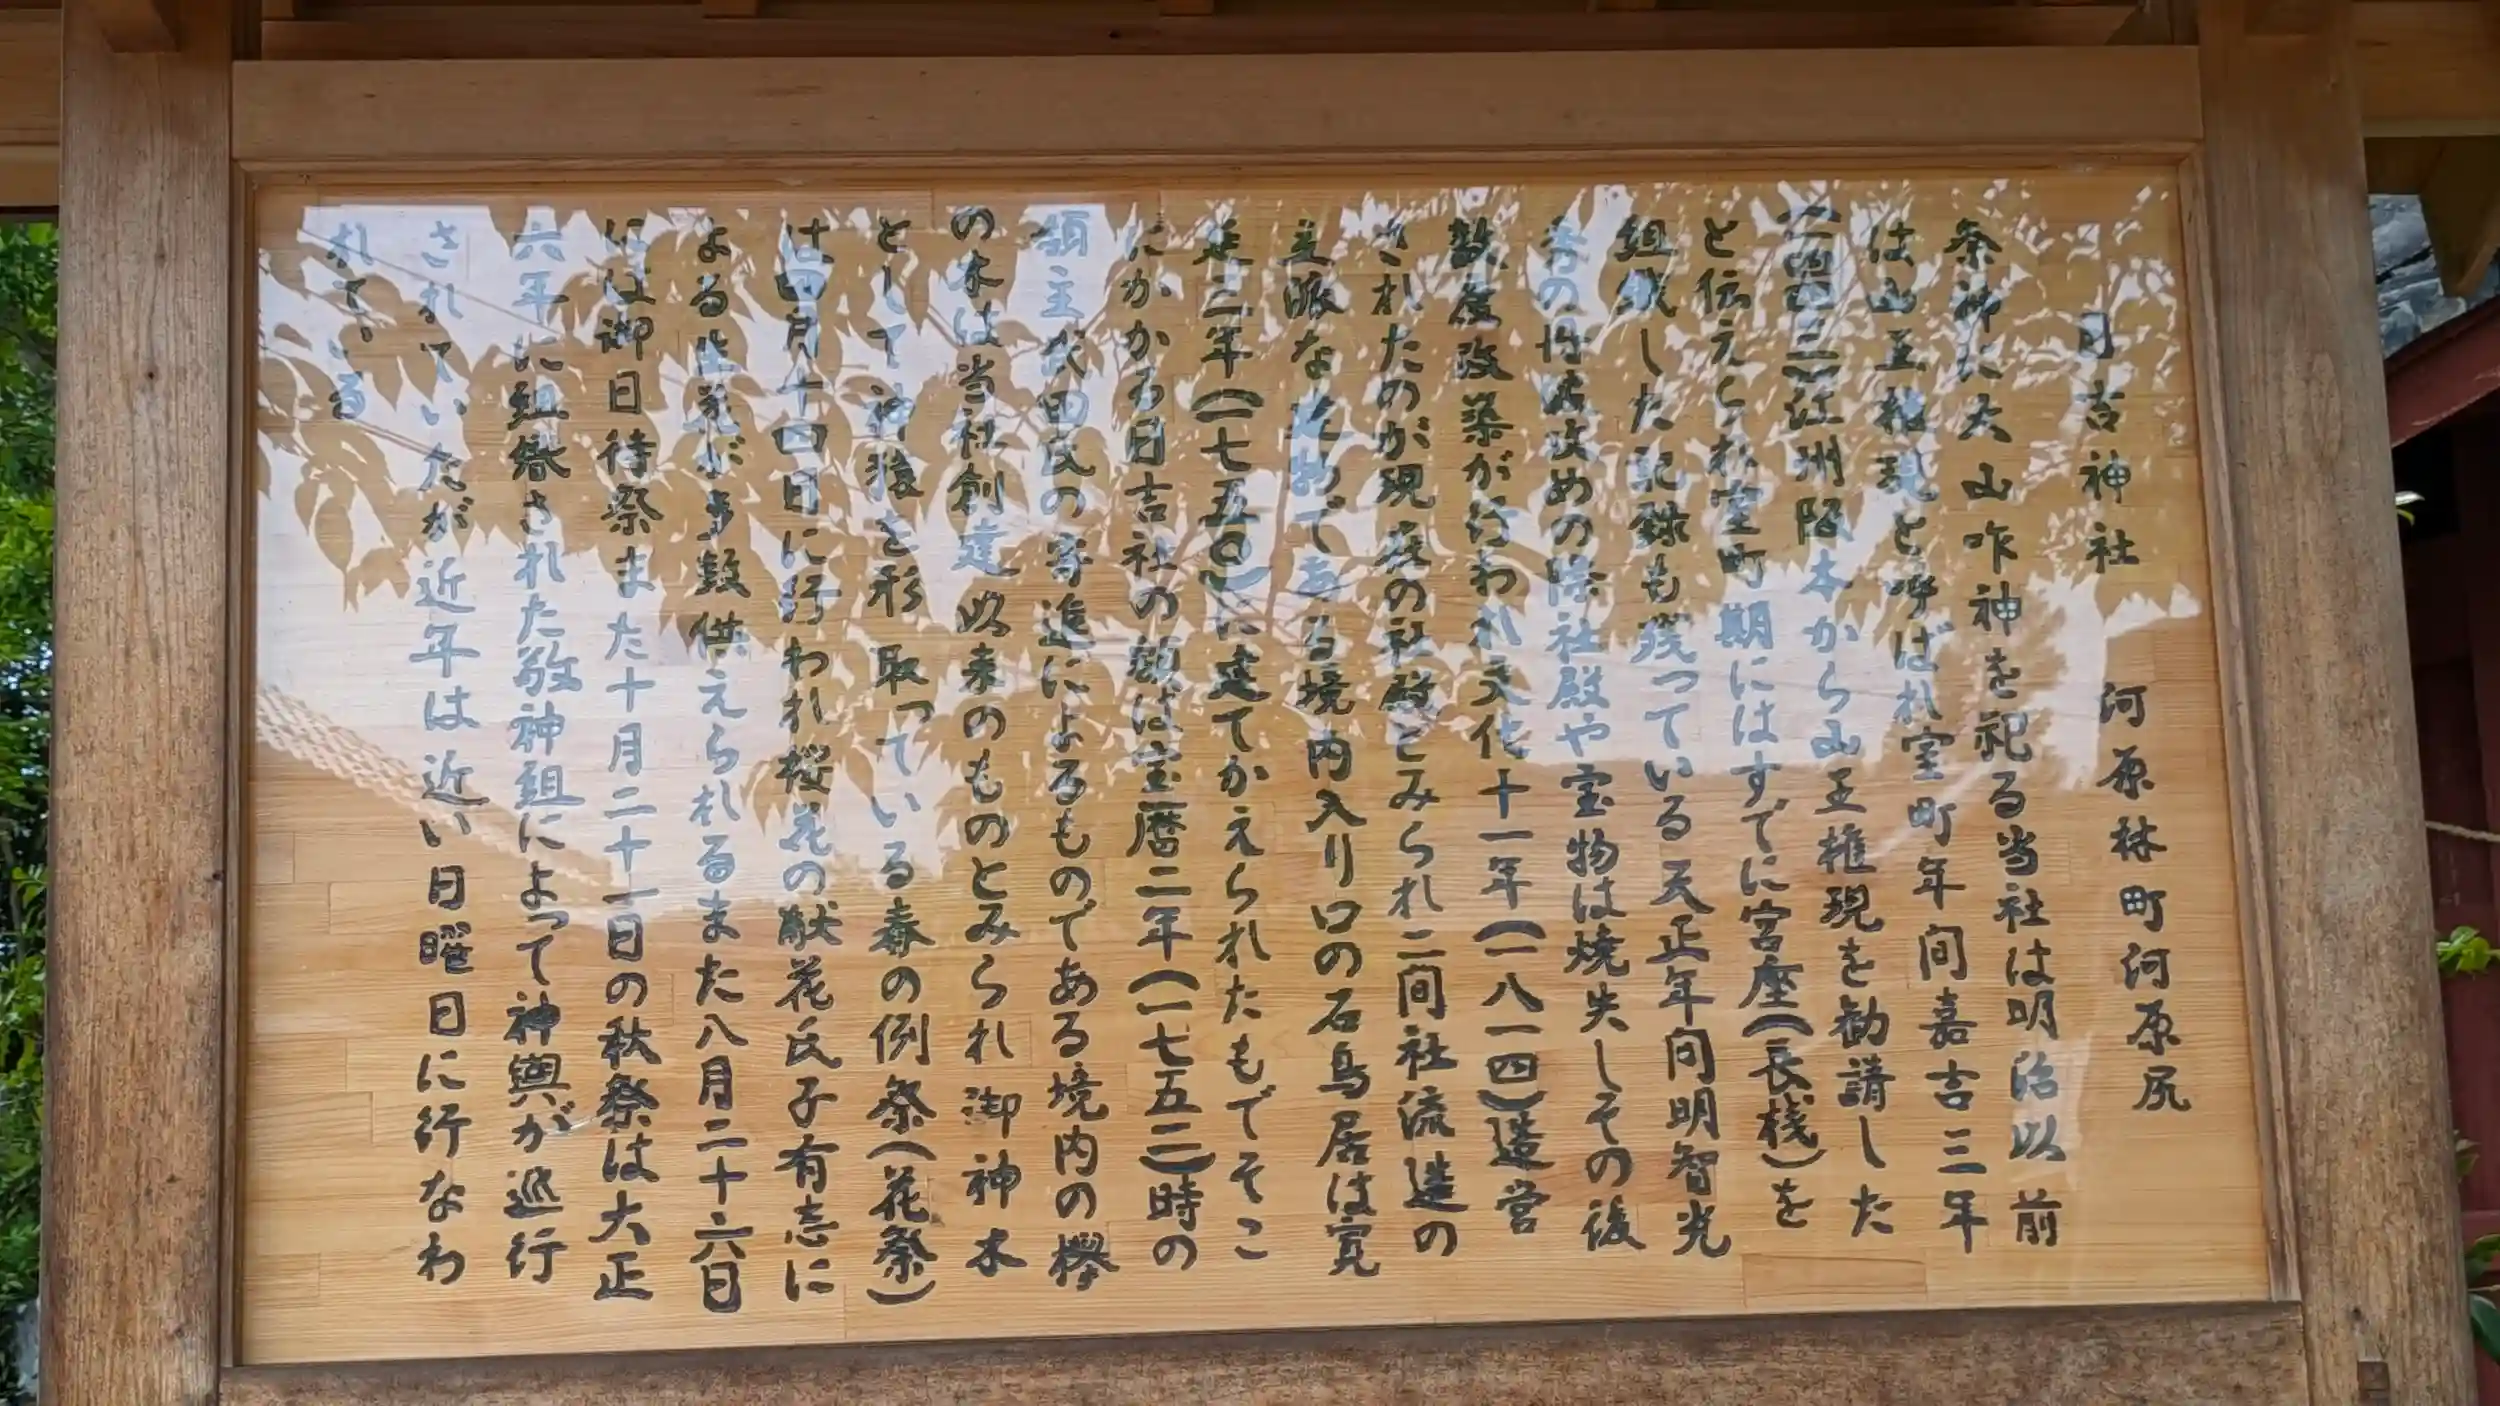 日吉神社　河原林町河原尻
祭神に大山咋神を祀る当社は明治以前
は山王権現と呼ばれ室町年間嘉吉三年
(一四四三)江州阪本から山王権現を勧請した
と伝えられ室町期にはすでに宮座(長桟)を
組織した記録も残っている天正年間明智光
秀の丹波攻めの際社殿や宝物は焼失しその後
数度改築が行われ文化十一年(一八一四)造営
されたのが現在の社殿とみられ二間社流造の
立派な建物である境内入り口の石鳥居は寛
延三年(一七五〇)に建てかえられたもでそこ
にかかる日吉社の額は宝暦二年(一七五二)時の
領主武田氏の寄進によるものである境内の欅
の木は当社創建以来のものとみられ御神木
として神猿を形取っている春の例祭(花祭)
は四月十四日に行われ桜花の献花氏子有志に
よる生花が多数供えられるまた八月二十六日
には御日待祭また十月二十一日の秋祭は大正
六年に組織された敬神組によって神輿が巡行
されていたが近年は近い日曜日に行なわ
れている